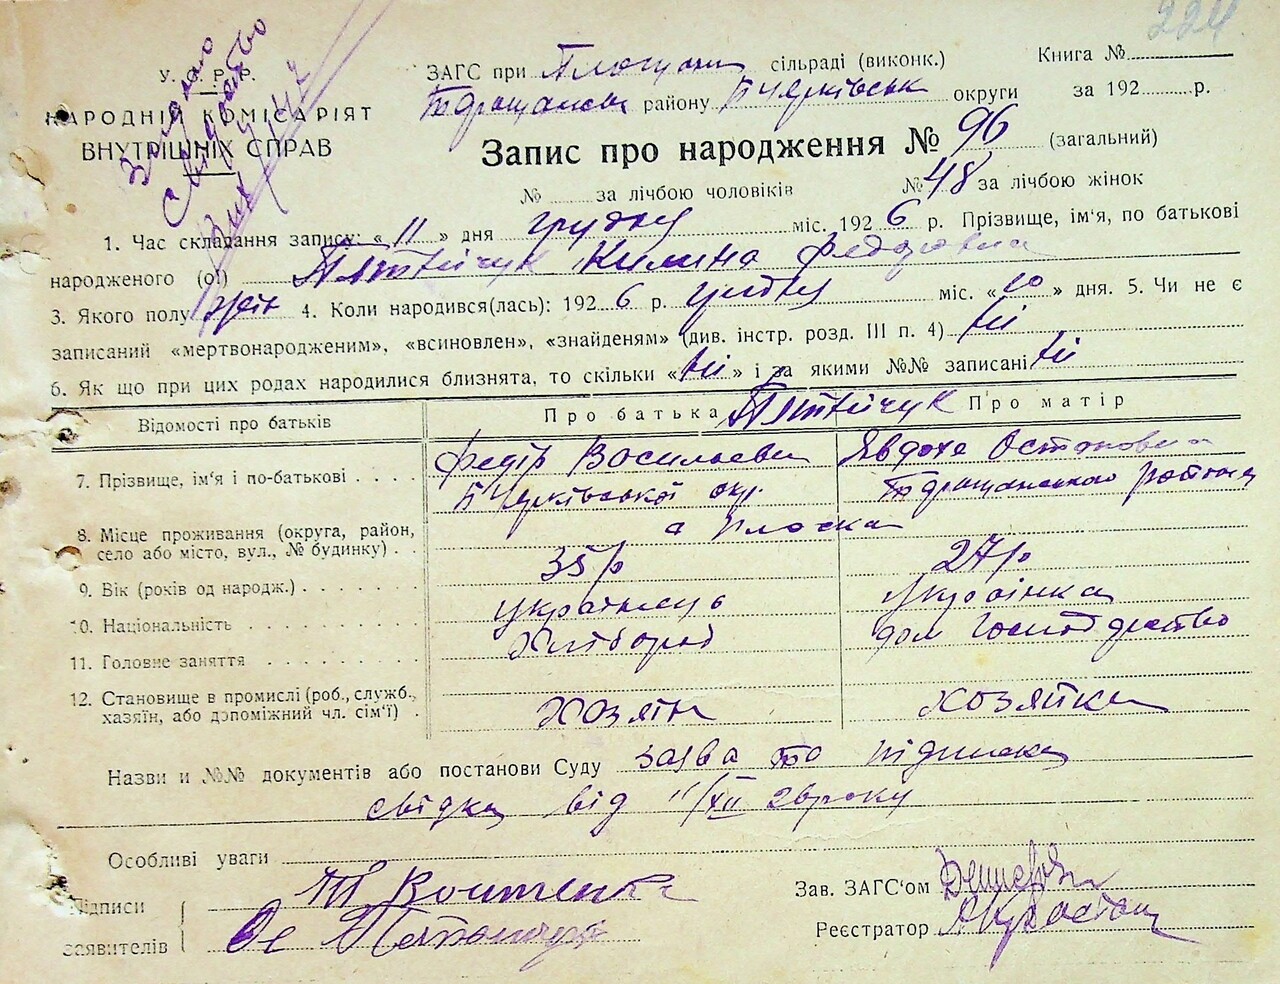 224.
Видано
Свідоцтво
У. С. Р. Р.
НАРОДНІЙ КОМІСАРІЯТ
ВНУТРІШНІХ СПРАВ
ЗАГС при сільраді (виконк.)
району БЦерківськ округи
Книга №
за 192 р.
Запис про народження № 96 (загальний)
№ за лічбою чоловіків № 48 за лічбою жінок
1. Час складання запису: « 11 » дня грудня міс. 192 6 р. Прізвище, ім'я, по батькові
народженого (ої) Килина Федоровна
3. Якого полу жін 4. Коли народився(лась): 192 6 р. грудня міс. « 10 » дня. 5. Чи не є
записаний «мертвонародженим», «всиновлен», «знайденям» (див. інстр. розд. III п. 4) ні
6. Як що при цих родах народилися близнята, то скільки « ні » і за якими №№ записані ні
Відомості про батьків
Про батька Про матір
7. Прізвище, ім'я і по-батькові
Федір Васильєви Явдоха Остаповна
БЦерківської окр. району
8. Місце проживання (округа, район,
село або місто, вул., № будинку)
с Плоска
9. Вік (років од народж.) 35 р 27 р
10. Національність українець українка
11. Головне заняття Хлібороб дом господарство
12. Становище в промислі (роб., служб.,
хазяїн, або допоміжний чл. сім'ї) хозяїн хозяйка
Назви и №№ документів або постанови Суду заява та підписка
свідка від 11/XII 26 року
Особливі уваги
Підписи
заявителів
Зав. ЗАГС'ом
Реєстратор